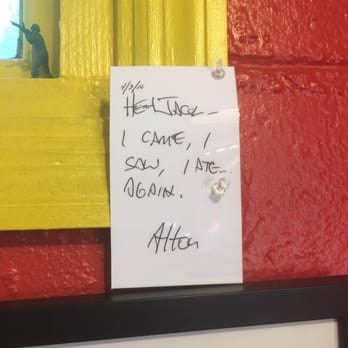 4/3/16
HEY JACK –
I CAME, I
SAW, I ATE...
AGAIN.
Alton